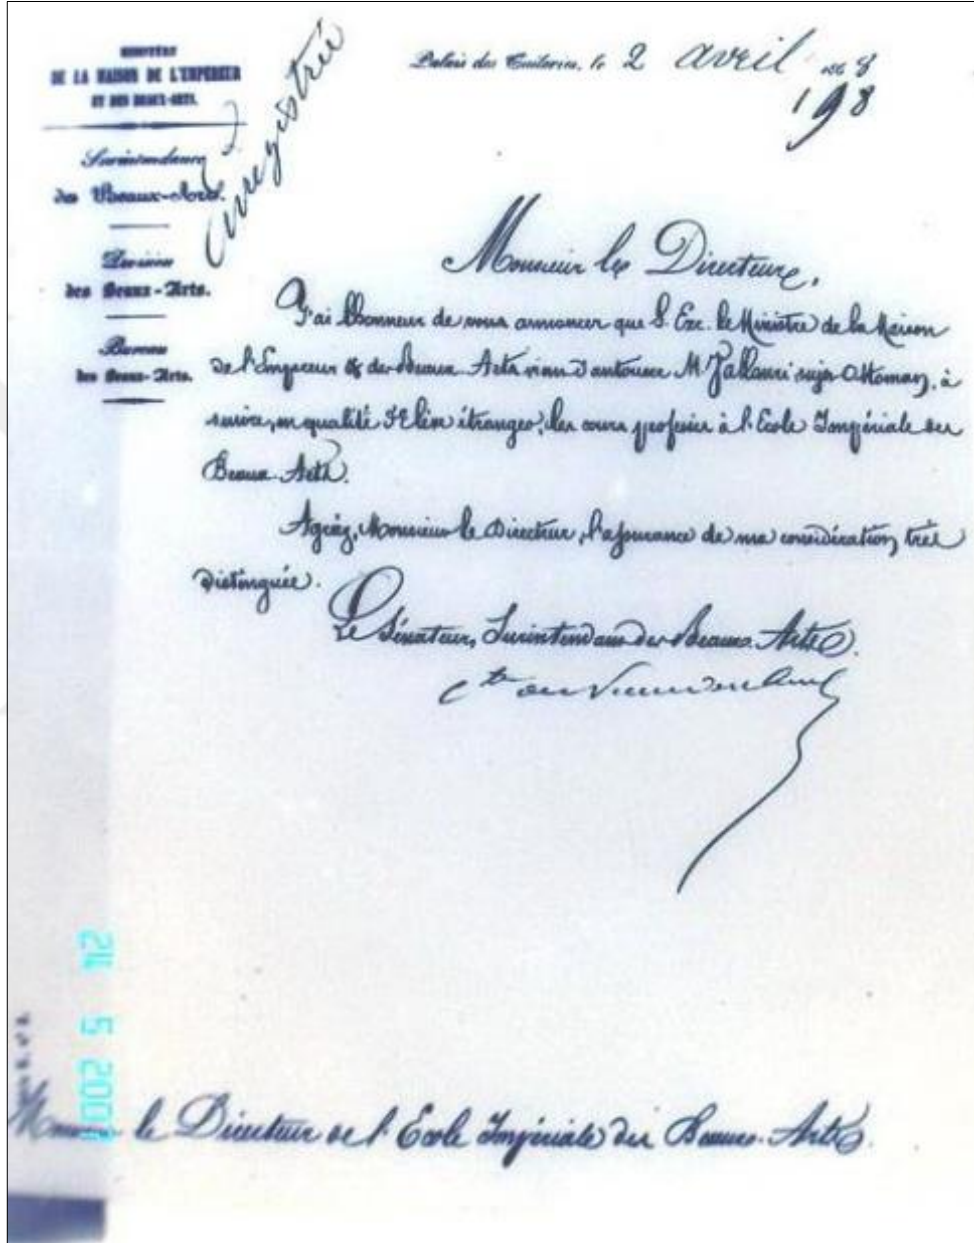 MINISTÈRE
DE LA MAISON DE L'EMPEREUR
ET DES BEAUX-ARTS.
Surintendance
des Beaux-Arts.
Division
des Beaux-Arts.
Bureau
des Beaux-Arts.
Enregistré
Palais des Tuileries, le 2 avril 1868
198
Monsieur le Directeur,
J'ai l'honneur de vous annoncer que S. Exc. le Ministre de la Maison
de l'Empereur & des Beaux-Arts vient d'autoriser M. sujet Ottoman, à
suivre, en qualité d'Elève étranger, les cours professés à l'Ecole Impériale des
Beaux-Arts.
Agréez, Monsieur le Directeur, l'assurance de ma considération très
distinguée.
Le Sénateur, Surintendant des Beaux-Arts.
Cte de Nieuwerkerke
24 5 200
Monsieur le Directeur de l'Ecole Impériale des Beaux-Arts.